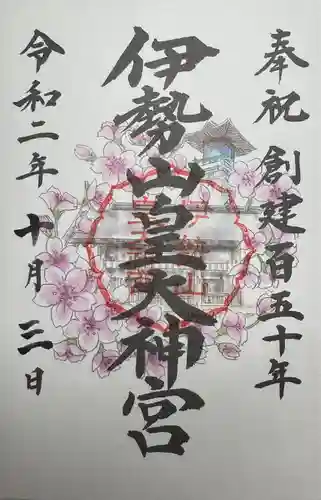 奉祝 創建百五十年
伊勢山皇大神宮
令和二年十月三日